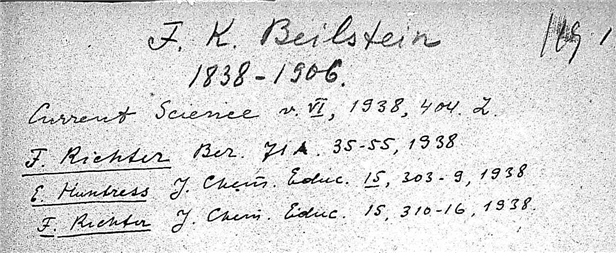 F. K. Beilstein
1838-1906.
Current Science v. VI, 1938, 404. 2.
F. Richter Ber. 71 A. 35-55, 1938
E. Huntress J. Chem. Educ. 15, 303-9, 1938
F. Richter J. Chem. Educ. 15, 310-16, 1938.